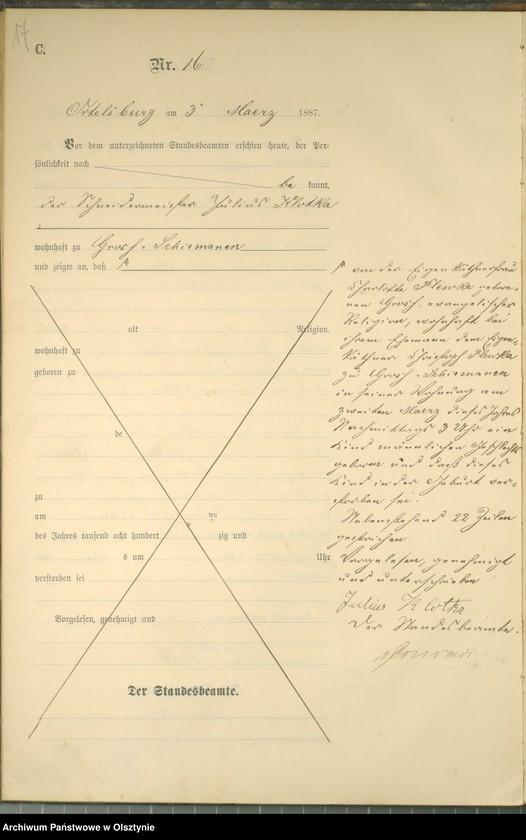 17
C.
Nr. 16
Ortelsburg am 3 Maerz 1887.
Vor dem unterzeichneten Standesbeamten erschien heute, der Per-
sönlichkeit nach
be kannt,
der Schneidermeister Julius Klotka
wohnhaft zu Groß-Schiemanen
und zeigte an, daß
alt Religion,
wohnhaft zu
geboren zu
de
zu
am ten
des Jahres tausend acht hundert zig und
s um Uhr
verstorben sei
Vorgelesen, genehmigt und
Der Standesbeamte.
von der Eigenkäthnerfrau
Charlotte Plewka gebore-
nen Grosh, evangelischer
Religion, wohnhaft bei
ihrem Ehemann dem Eigen-
käthner Christoph Plewka
zu Groß-Schiemanen
in seiner Wohnung am
zweiten Maerz dieses Jahres
Nachmittags 3 Uhr ein
Kind männlichen Geschlechts
geboren und daß dieses
Kind in der Geburt ver-
storben sei.
Nebenstehend 22 Zeilen
gestrichen.
Vorgelesen, genehmigt
und unterschrieben
Julius Klotka
Der Standesbeamte.
Archiwum Państwowe w Olsztynie